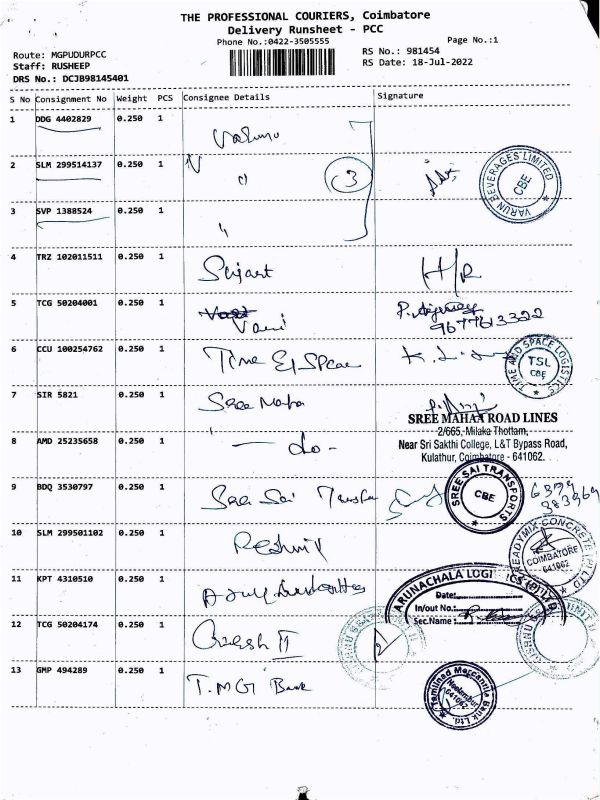 THE PROFESSIONAL COURIERS, Coimbatore
Delivery Runsheet - PCC
Phone No.:0422-3505555
Page No.:1
Route: MGPUDURPCC
Staff: RUSHEEP
DRS No.: DCJB98145401
RS No.: 981454
RS Date: 18-Jul-2022
S No Consignment No Weight PCS Consignee Details Signature
1 DDG 4402829 0.250 1
2 SLM 299514137 0.250 1 " 3
VARUN BEVERAGES LIMITED CBE
3 SVP 1388524 0.250 1 "
4 TRZ 102011511 0.250 1 H/R
5 TCG 50204001 0.250 1 Vani
9677613322
6 CCU 100254762 0.250 1 Time & Space
TIME AND SPACE LOGISTICS TSL CBE
7 SIR 5821 0.250 1 Sree Maha
SREE MAHAA ROAD LINES
2/665, Milaka Thottam,
Near Sri Sakthi College, L&T Bypass Road,
Kulathur, Coimbatore - 641062.
8 AMD 25235658 0.250 1 — do -
9 BDQ 3530797 0.250 1 Sree Sai Transfo
SREE SAI TRANSPORTS CBE
10 SLM 299501102 0.250 1
READYMIX CONCRETE COIMBATORE 641062
11 KPT 4310510 0.250 1
ARUNACHALA LOGISTICS (P) LTD
Date:
In/out No.:
Sec.Name:
12 TCG 50204174 0.250 1
13 GMP 494289 0.250 1 T.M.G Bank
Tamilnad Mercantile Bank Ltd. Neelambur 641062